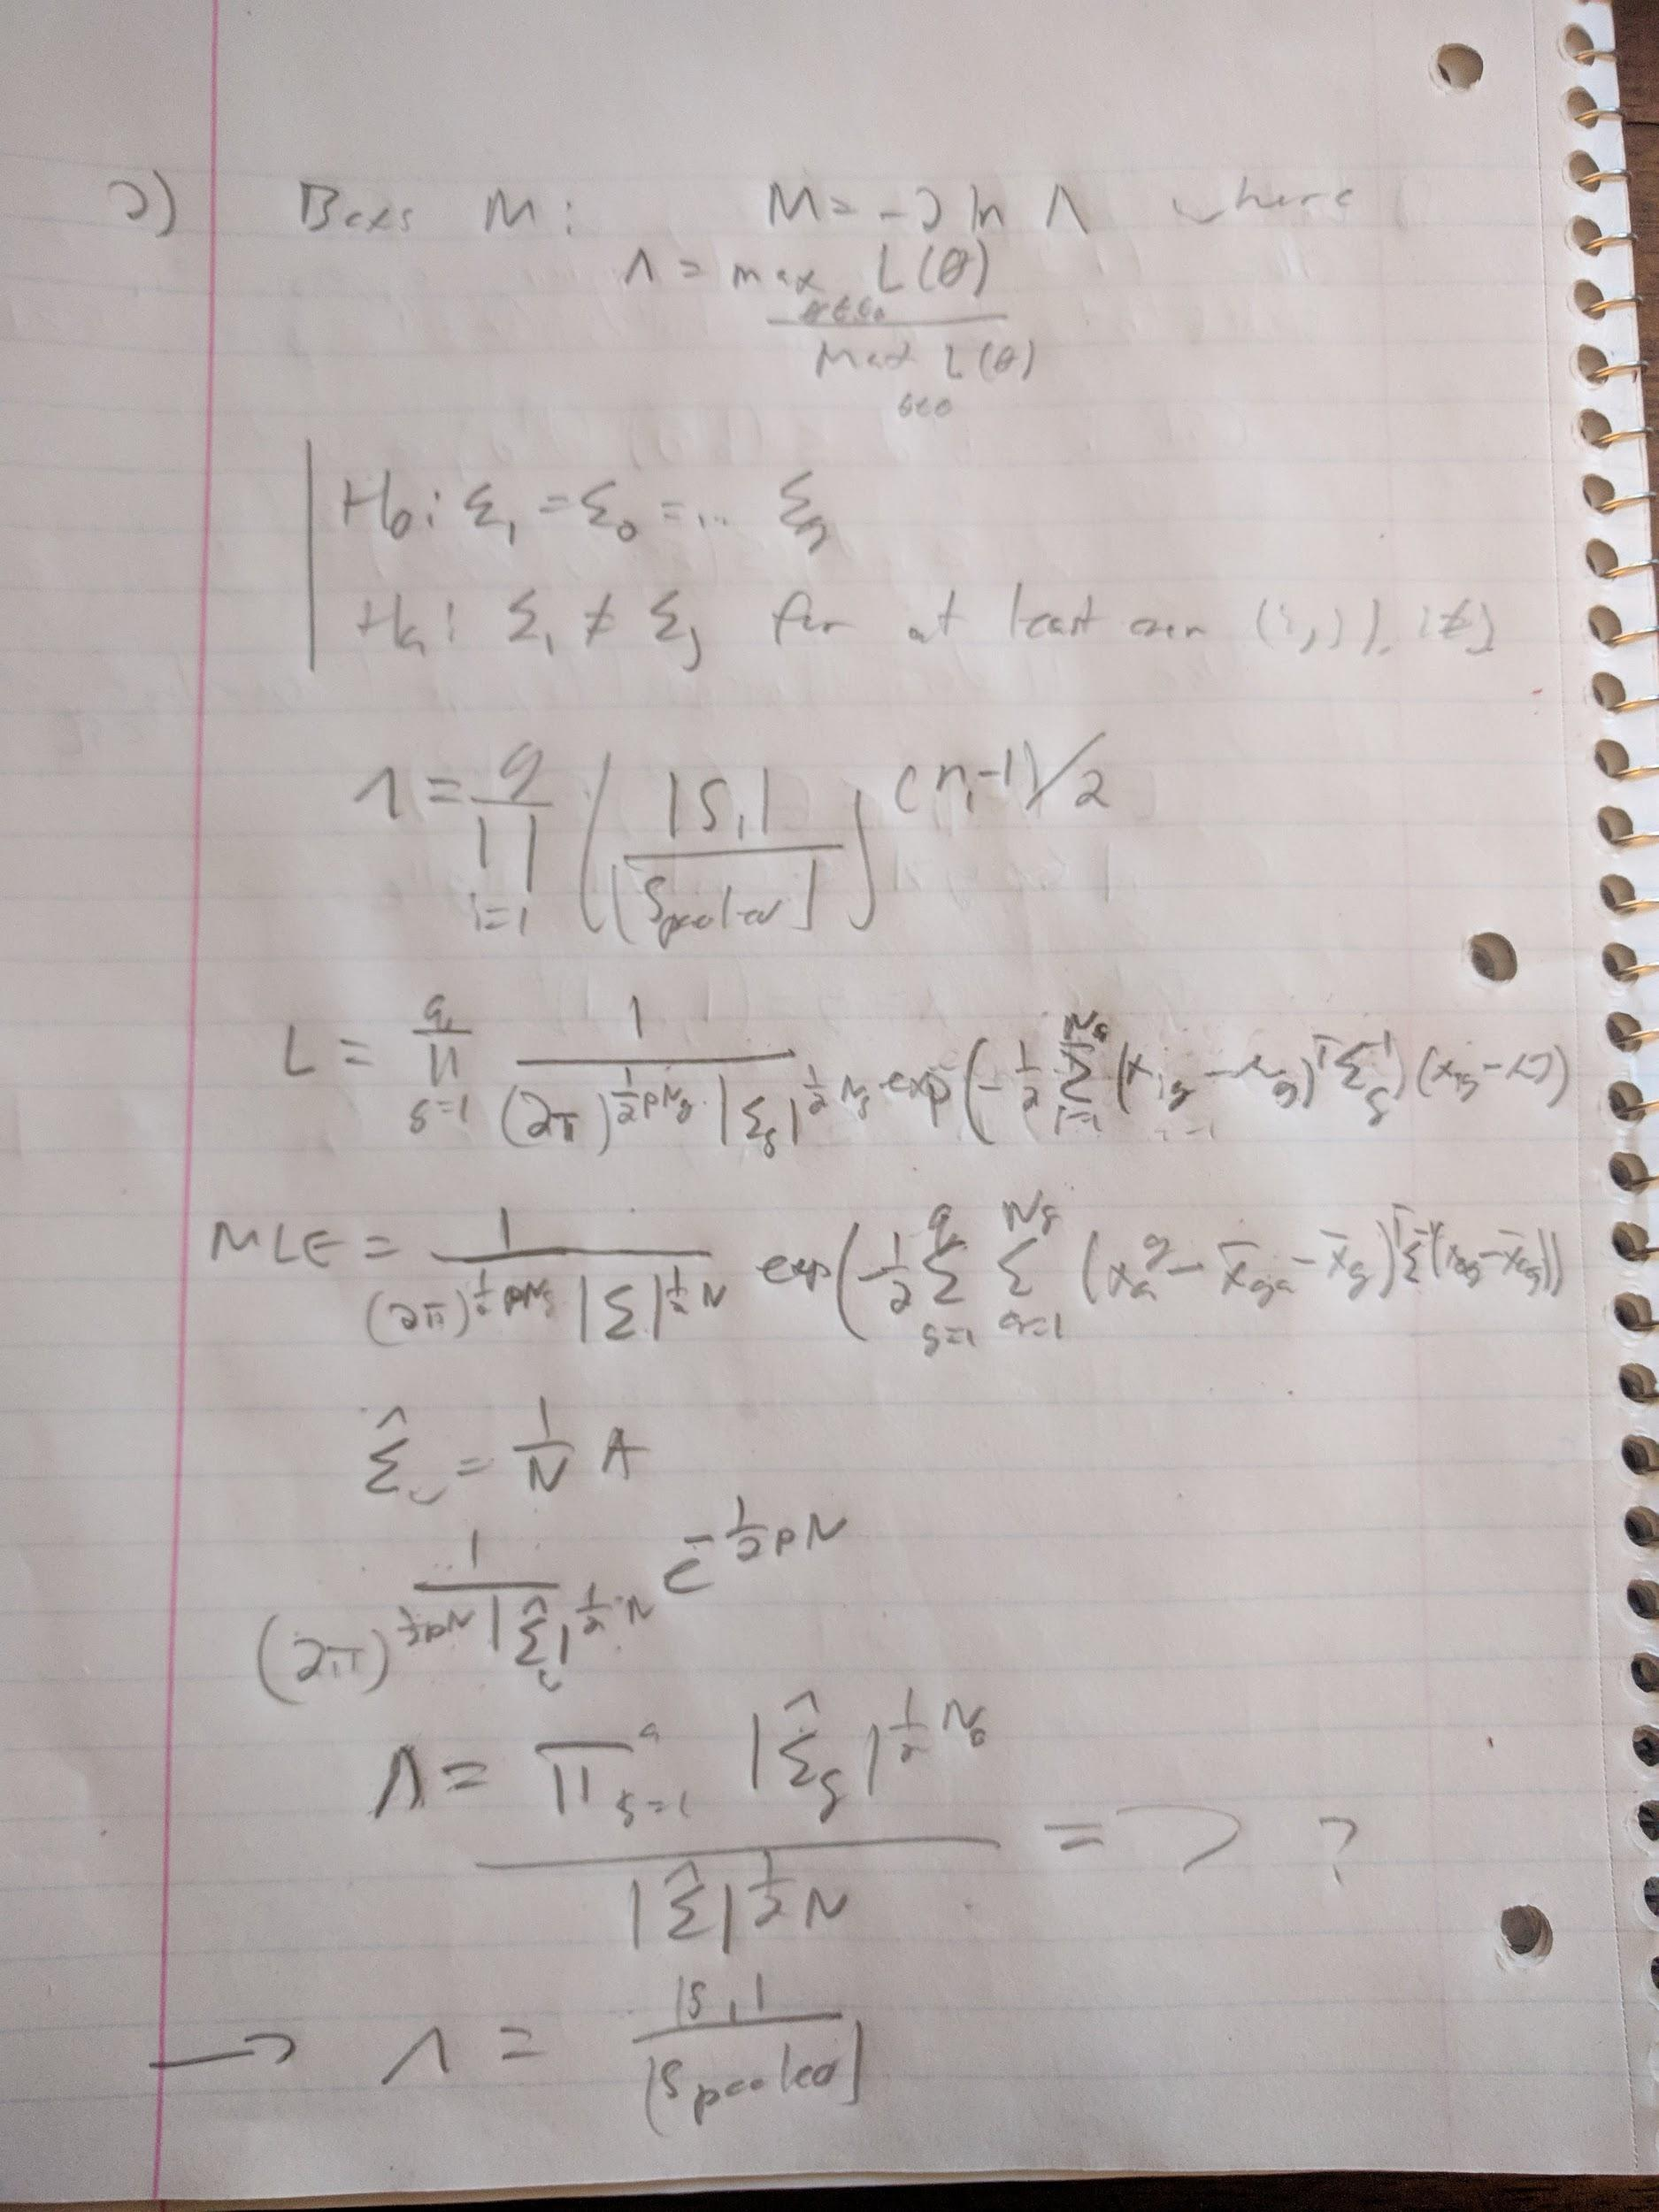 2) Boxs M: M = -2 ln Λ where
Λ = max L(θ)
θ∈Θ₀
Max L(θ)
θ∈Θ
H₀: Σ₁ = Σ₀ = ... Σg
Ha: Σi ≠ Σj for at least one (i,j), i≠j
Λ = ∏_{i=1}^{g} ( |Si| / |Spooled| )^{(ni-1)/2}
L = ∏_{g=1}^{q} 1 / ((2π)^{½pNg} |Σg|^{½Ng}) exp(-½ Σ_{i=1}^{Ng} (xig - μg)^T Σg^{-1}) (xig - μ)
MLE = 1 / ((2π)^{½pNg} |Σ|^{½N}) exp(-½ Σ_{g=1}^{q} Σ_{a=1}^{Ng} (x_a^g - x̄ga - x̄g)^T Σ^{-1} (xag - x̄ag))
Σ̂ω = 1/N A
1 / ((2π)^{½pN} |Σ̂ω|^{½N}) e^{-½pN}
Λ = ∏_{g=1}^{q} |Σ̂g|^{½Ng} / |Σ̂|^{½N} => ?
→ Λ = |Si| / |Spooled|